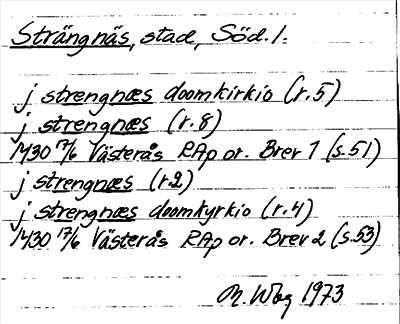 Strängnäs, stad, Söd. l.
j strengnæs doomkirkio (r.5)
j strengnæs (r.8)
1430 17/6 Västerås RAp or. Brev 1 (s.51)
j strengnæs (r.2)
j strengnæs doomkyrkio (r.4)
1430 17/6 Västerås RAp or. Brev 2 (s.53)
M. Wbg 1973